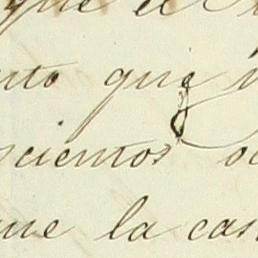 que el
nto que
cientos
ue la cas